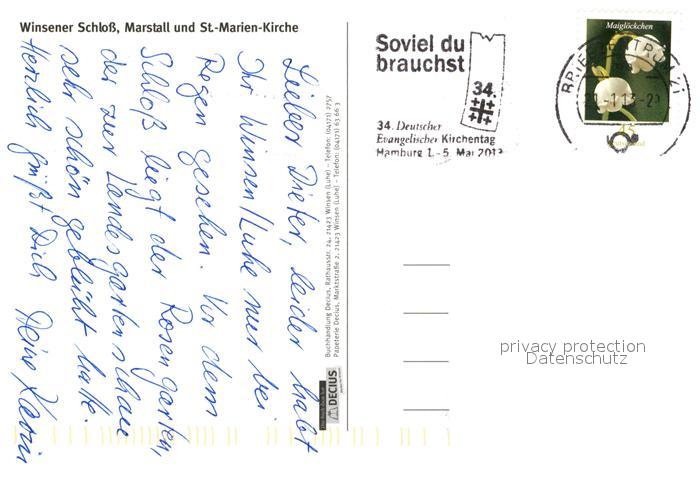 Winsener Schloß, Marstall und St.-Marien-Kirche
Lieber Dieter, leider habt
Ihr Winsen/Luhe nur bei
Regen gesehen. Vor dem
Schloß liegt der Rosengarten,
der zur Landesgartenschau
sehr schön geblüht hatte.
Herzlich grüßt Dich Deine Karin
Buchhandlung Decius, Rathausstr. 24, 21423 Winsen (Luhe) – Telefon: (04171) 2757
Papeterie Decius, Marktstraße 2, 21423 Winsen (Luhe) – Telefon: (04171) 63 66 3
DECIUS
Soviel du
brauchst
34.
34. Deutscher
Evangelischer Kirchentag
Hamburg 1.-5. Mai 2013
Maiglöckchen
BRIEFZENTRUM 21
45
Deutschland
privacy protection
Datenschutz